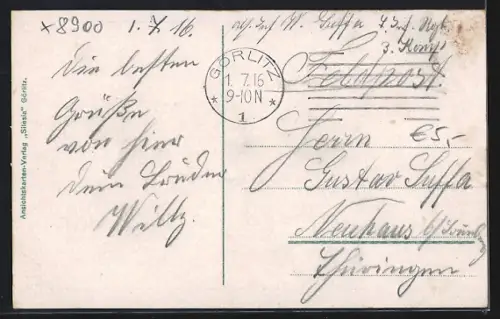 x 8900
1. 7. 16.
Die besten
Grüße
von hier
Dein Bruder
Willy.
Ansichtskarten-Verlag „Silesia" Görlitz.
GÖRLITZ
1. 7. 16
9-10 N
* 1 *
W. Suffa
3. Komp
Feldpost.
Herrn
Gustav Suffa
€5,-
Neuhaus
Thüringen